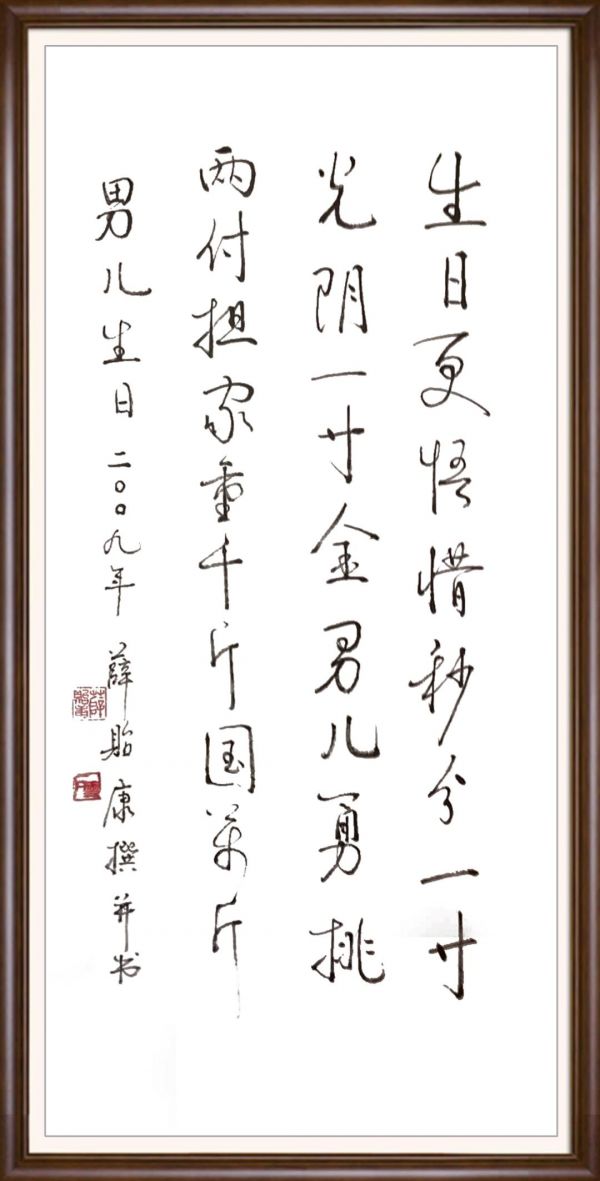 生日更悟惜秒分一寸
光阴一寸金男儿勇挑
两付担家重千斤国万斤
男儿生日二〇〇九年薛贻康撰并书